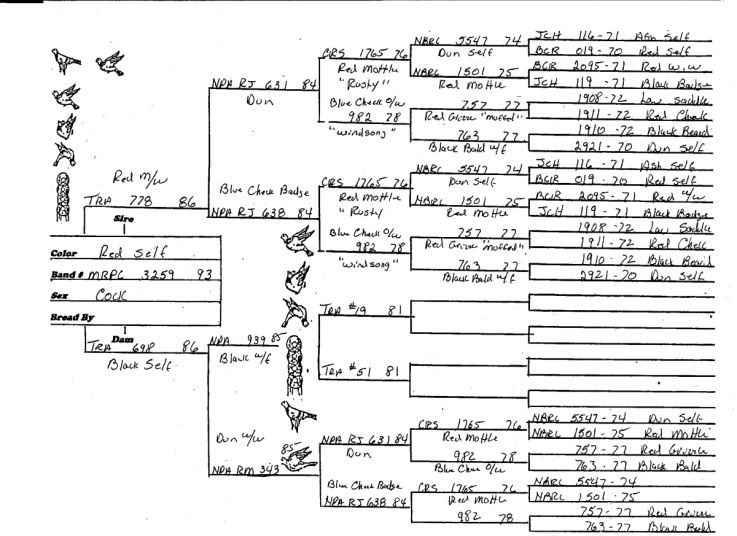 NBRC 5547 74
Dun Self
JCH 116-71 Ash Self
BCR 019-70 Red Self
CRS 1765 76
Red Mottle
"Rusty"
NBRC 1501 75
Red Mottle
BCR 2095-71 Red W.W
JCH 119-71 Black Badge
NPA RJ 631 84
Dun
Blue Check O/W
982 78
"windsong"
757 77
Red Grizzle "muffed"
1908-72 Lav Saddle
1911-72 Red Check
763 77
Black Bald W/F
1910-72 Black Beard
2921-70 Dun Self
Red M/W
TRA 778 86
Sire
Blue Check Badge
NPA RJ 638 84
CRS 1765 76
Red Mottle
"Rusty"
NBRC 5547 74
Dun Self
JCH 116-71 Ash Self
BCR 019-70 Red Self
NBRC 1501 75
Red Mottle
BCR 2095-71 Red W/W
JCH 119-71 Black Badge
Blue Check O/W
982 78
"windsong"
757 77
Red Grizzle "muffed"
1908-72 Lav Saddle
1911-72 Red Check
763 77
Black Bald W/F
1910-72 Black Beard
2921-70 Dun Self
Color Red Self
Band # MRPC 3259 93
Sex Cock
Breed By
Dam
TRA 698 86
Black Self
NPA 939 85
Black W/F
TRA #19 81
TRA #51 81
Dun W/W
85
NPA RM 343
NPA RJ 631 84
Dun
CRS 1765 76
Red Mottle
NBRC 5547-74 Dun Self
NBRC 1501-75 Red Mottle
982 78
Blue Check O/W
757-77 Red Grizzle
763-77 Black Bald
Blue Check Badge
NPA RJ 638 84
CRS 1765 76
Red Mottle
NBRC 5547-74
NBRC 1501-75
982 78
757-77 Red Grizzle
763-77 Black Bald